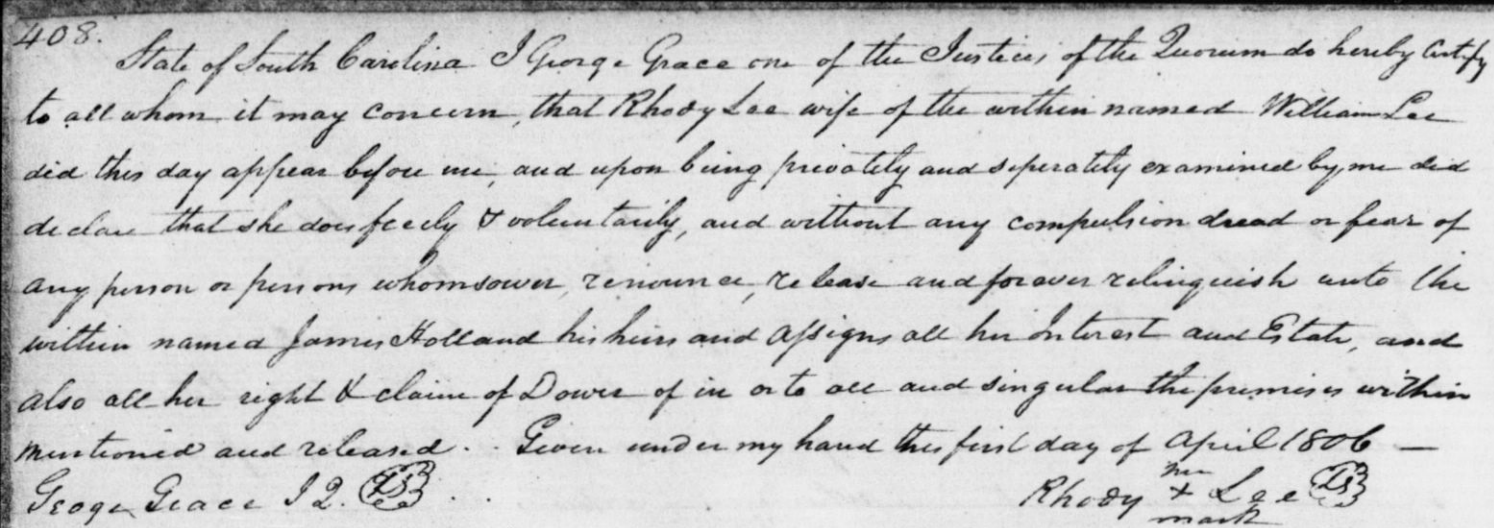 408.
State of South Carolina I George Grace one of the Justices of the Quorum do hereby Certify
to all whom it may concern, that Rhody Lee wife of the within named William Lee
did this day appear before me, and upon being privately and seperately examined by me did
declare that she does freely & voluntarily, and without any compulsion dread or fear of
any person or persons whomsower, renounce, release and forever relinquish unto the
within named James Holland his heirs and assigns all her Interest and Estate, and
also all her right & claim of Dower of in or to all and singular the premises within
mentioned and released. Given under my hand this first day of April 1806 —
George Grace J Q. (LS) Rhody her + mark Lee (LS)